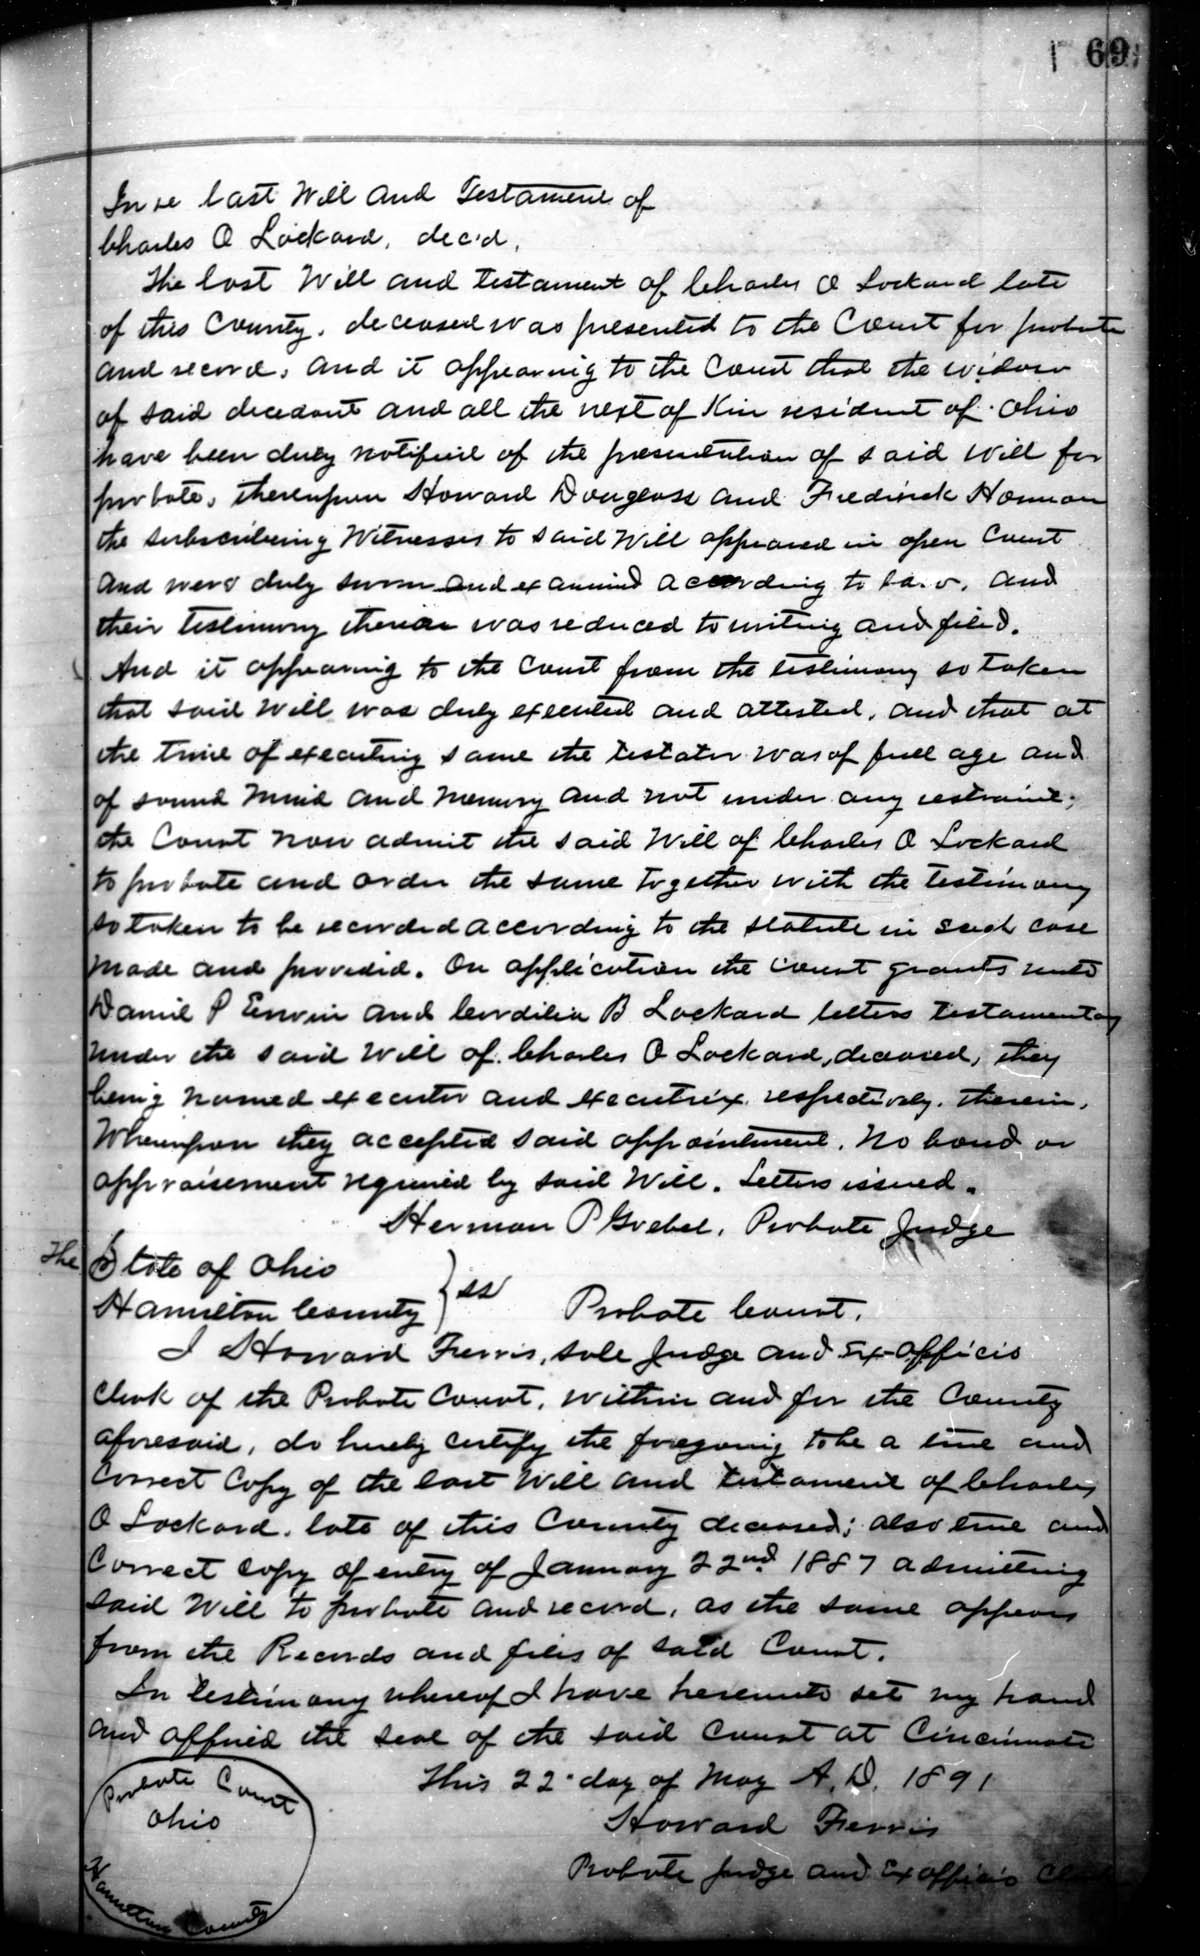 69
In re last Will and Testament of
Charles O Lockard, dec'd,
The last Will and testament of Charles O Lockard late
of this County, deceased was presented to the Court for probate
and record, and it appearing to the Court that the widow
of said decedent and all the next of Kin resident of Ohio
have been duly notified of the presentation of said Will for
probate, thereupon Howard Douglass and Frederick Hermann
the subscribing Witnesses to said Will appeared in open Court
and were duly sworn and examined according to law, and
their testimony therein was reduced to writing and filed.
And it appearing to the Court from the testimony so taken
that said Will was duly executed and attested, and that at
the time of executing same the testator was of full age and
of sound mind and memory and not under any restraint;
the Court now admit the said Will of Charles O Lockard
to probate and order the same together with the testimony
so taken to be recorded according to the statute in such case
made and provided. On application the Court grants unto
Daniel P Erwin and Cordilia B Lockard letters testamentary
under the said Will of Charles O Lockard, deceased, they
being named executor and executrix respectively therein.
Whereupon they accepted said appointment. No bond or
appraisement required by said Will. Letters issued.
Herman P Goebel, Probate Judge
The State of Ohio
Hamilton County } ss Probate Court.
I Howard Ferris, sole Judge and Ex-officio
Clerk of the Probate Court, within and for the County
aforesaid, do hereby certify the foregoing to be a true and
correct Copy of the last Will and testament of Charles
O Lockard, late of this County deceased; also true and
Correct copy of entry of January 22nd 1887 admitting
said Will to probate and record, as the same appears
from the Records and files of said Court.
In testimony whereof I have hereunto set my hand
and affixed the seal of the said Court at Cincinnati
This 22 day of May A.D. 1891
Howard Ferris
Probate Judge and Ex officio Clerk
Probate Court
Ohio
Hamilton County